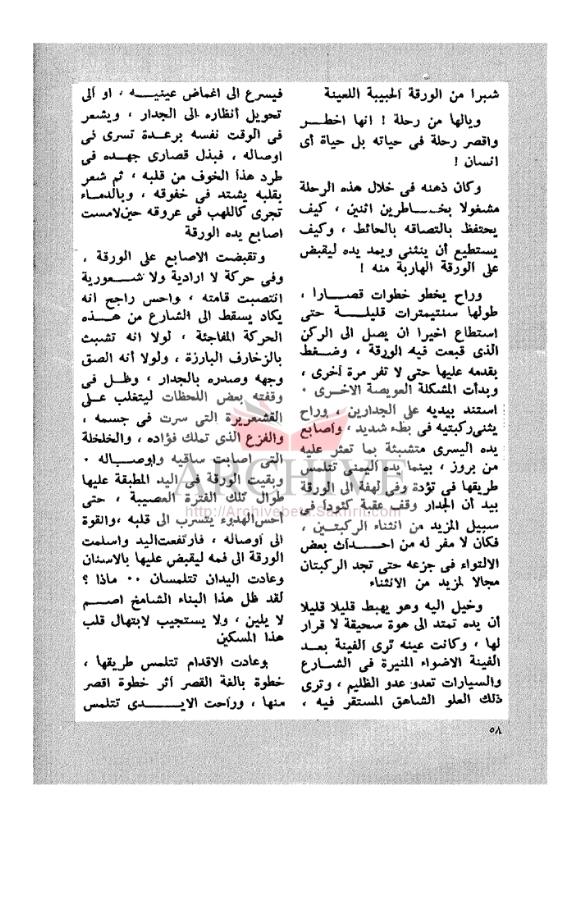 شبرا من الورقة الحبيبة اللعينة
ويالها من رحلة ! انها اخطر
واقصر رحلة فى حياته بل حياة أى
انسان !
وكان ذهنه فى خلال هذه الرحلة
مشغولا بخاطرين اثنين ، كيف
يحتفظ بالتصاقه بالحائط ، وكيف
يستطيع أن ينثنى ويمد يده ليقبض
على الورقة الهاربة منه !
وراح يخطو خطوات قصارا ،
طولها سنتيمترات قليلة حتى
استطاع اخيرا ان يصل الى الركن
الذى قبعت فيه الورقة ، وضغط
بقدمه عليها حتى لا تفر مرة أخرى ،
وبدأت المشكلة العويصة الاخرى ٠
استند بيديه على الجدارين ، وراح
يثنى ركبتيه فى بطء شديد ، واصابع
يده اليسرى متشبثة بما تعثر عليه
من بروز ، بينما يده اليمنى تتلمس
طريقها فى تؤدة وفى لهفة الى الورقة
بيد أن الجدار وقف عقبة كئودا فى
سبيل المزيد من انثناء الركبتين ،
فكان لا مفر له من احداث بعض
الالتواء فى جزعه حتى تجد الركبتان
مجالا لمزيد من الانثناء
وخيل اليه وهو يهبط قليلا قليلا
أن يده تمتد الى هوة سحيقة لا قرار
لها ، وكانت عينه ترى الفينة بعد
الفينة الاضواء المنيرة فى الشارع
والسيارات تعدو عدو الظليم ، وترى
ذلك العلو الشاهق المستقر فيه ،
فيسرع الى اغماض عينيه ، او الى
تحويل أنظاره الى الجدار ، ويشعر
فى الوقت نفسه برعدة تسرى فى
اوصاله ، فبذل قصارى جهده فى
طرد هذا الخوف من قلبه ، ثم شعر
بقلبه يشتد فى خفوقه ، وبالدماء
تجرى كاللهب فى عروقه حين لامست
اصابع يده الورقة
وتقبضت الاصابع على الورقة ،
وفى حركة لا ارادية ولا شعورية
انتصبت قامته ، واحس راجح انه
يكاد يسقط الى الشارع من هذه
الحركة المفاجئة ، لولا انه تشبث
بالزخارف البارزة ، ولولا أنه الصق
وجهه وصدره بالجدار ، وظل فى
وقفته بعض اللحظات ليتغلب على
القشعريرة التى سرت فى جسمه ،
والفزع الذى تملك فؤاده ، والخلخلة
التى اصابت ساقيه واوصاله ٠
وبقيت الورقة فى اليد المطبقة عليها
طوال تلك الفترة العصيبة ، حتى
أحس الهدوء يتسرب الى قلبه ، والقوة
الى أوصاله ، فارتفعت اليد واسلمت
الورقة الى فمه ليقبض عليها بالاسنان
وعادت اليدان تتلمسان ٠٠ ماذا ؟
لقد ظل هذا البناء الشامخ اصم
لا يلين ، ولا يستجيب لابتهال قلب
هذا المسكين
وعادت الاقدام تتلمس طريقها ،
خطوة بالغة القصر أثر خطوة اقصر
منها ، وراحت الايدى تتلمس
ARCHIVE
٥٨